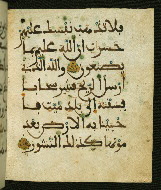 فلا تذهب نفسك عليهم
حسرت ان الله عليم بما
يصنعون والله الذي
ارسل الريح فتثير سحابا
فسقنه الى بلد ميت فا
حيينا به الارض بعد
موتها كذلك النشور